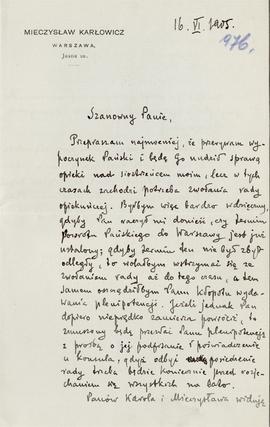 MIECZYSŁAW KARŁOWICZ
WARSZAWA,
Jasna 10.
16. VI. 1905.
976.
Szanowny Panie,
Przepraszam najmocniej, że przerywam wy-
poczynek Pański i będę Go nudził sprawą
opieki nad siostrzeńcem moim, lecz w tych
czasach zachodzi potrzeba zwołania rady
opiekuńczej. Byłbym więc bardzo wdzięczny,
gdyby Pan raczył mi donieść, czy termin
powrotu Pańskiego do Warszawy jest już
ustalony; gdyby termin ten nie był zbyt
odległy, to wolałbym wstrzymać się ze
zwołaniem rady aż do tego czasu, a tem
samem oszczędziłbym Panu kłopotu wyda-
wania plenipotencji. Jeżeli jednak Pan
dopiero nieprędko zamierza powrócić, to
zmuszony będę przesłać Panu plenipotencję
z prośbą o jej podpisanie i poświadczenie
u konsula, gdyż odbyć posiedzenie
rady trzeba będzie koniecznie przed roz
jechaniem się wszystkich na lato.
Panów Karola i Mieczysława widuję